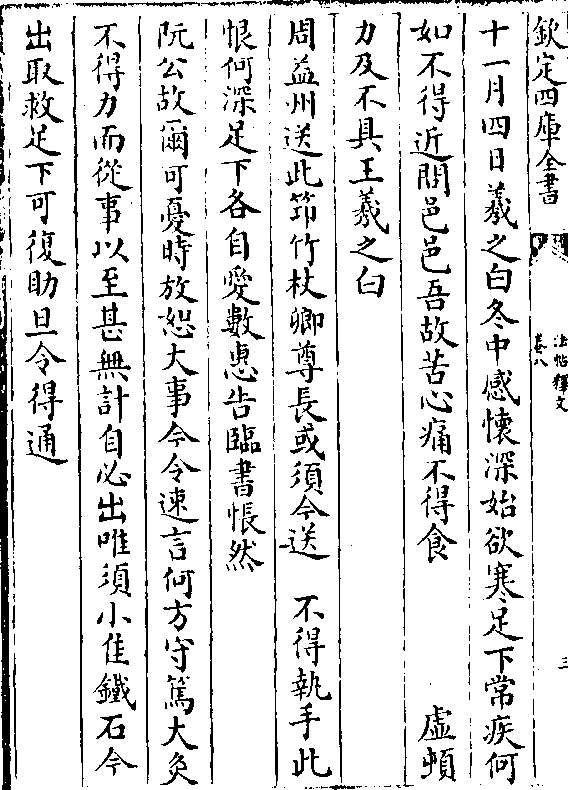 欽定四庫全書
法帖釋文
卷八
三
十一月四日羲之白冬中感懷深始欲寒足下常疾何
如不得近問邑邑吾故苦心痛不得食 虛頓
力及不具王羲之白
周益州送此筇竹杖卿尊長或須今送 不得執手此
恨何深足下各自愛數惠告臨書悵然
阮公故爾可憂時放恕大事今令速言何方守篤大灸
不得力而從事以至甚無計自必出唯須小佳鐵石今
出取救足下可復助旦令得通